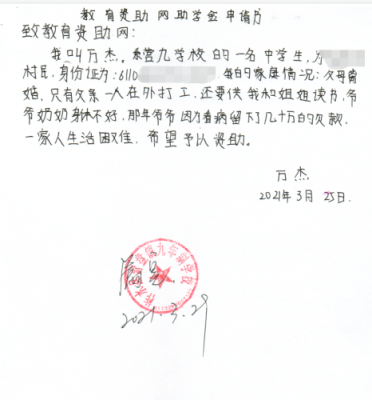 教育资助网助学金申请书
致教育资助网:
我叫万杰。营九学校的一名中学生,为
村民,身份证为:6110 我的家庭情况:父母离
婚、只有父亲一人在外打工,还要供我和姐姐读书,爷
爷奶奶身体不好,那年爷爷因为看病留下了几十万的欠款,
一家人生活困难,希望予以资助。
万杰
2021年3月25日.
九年制学校
2021.3.29